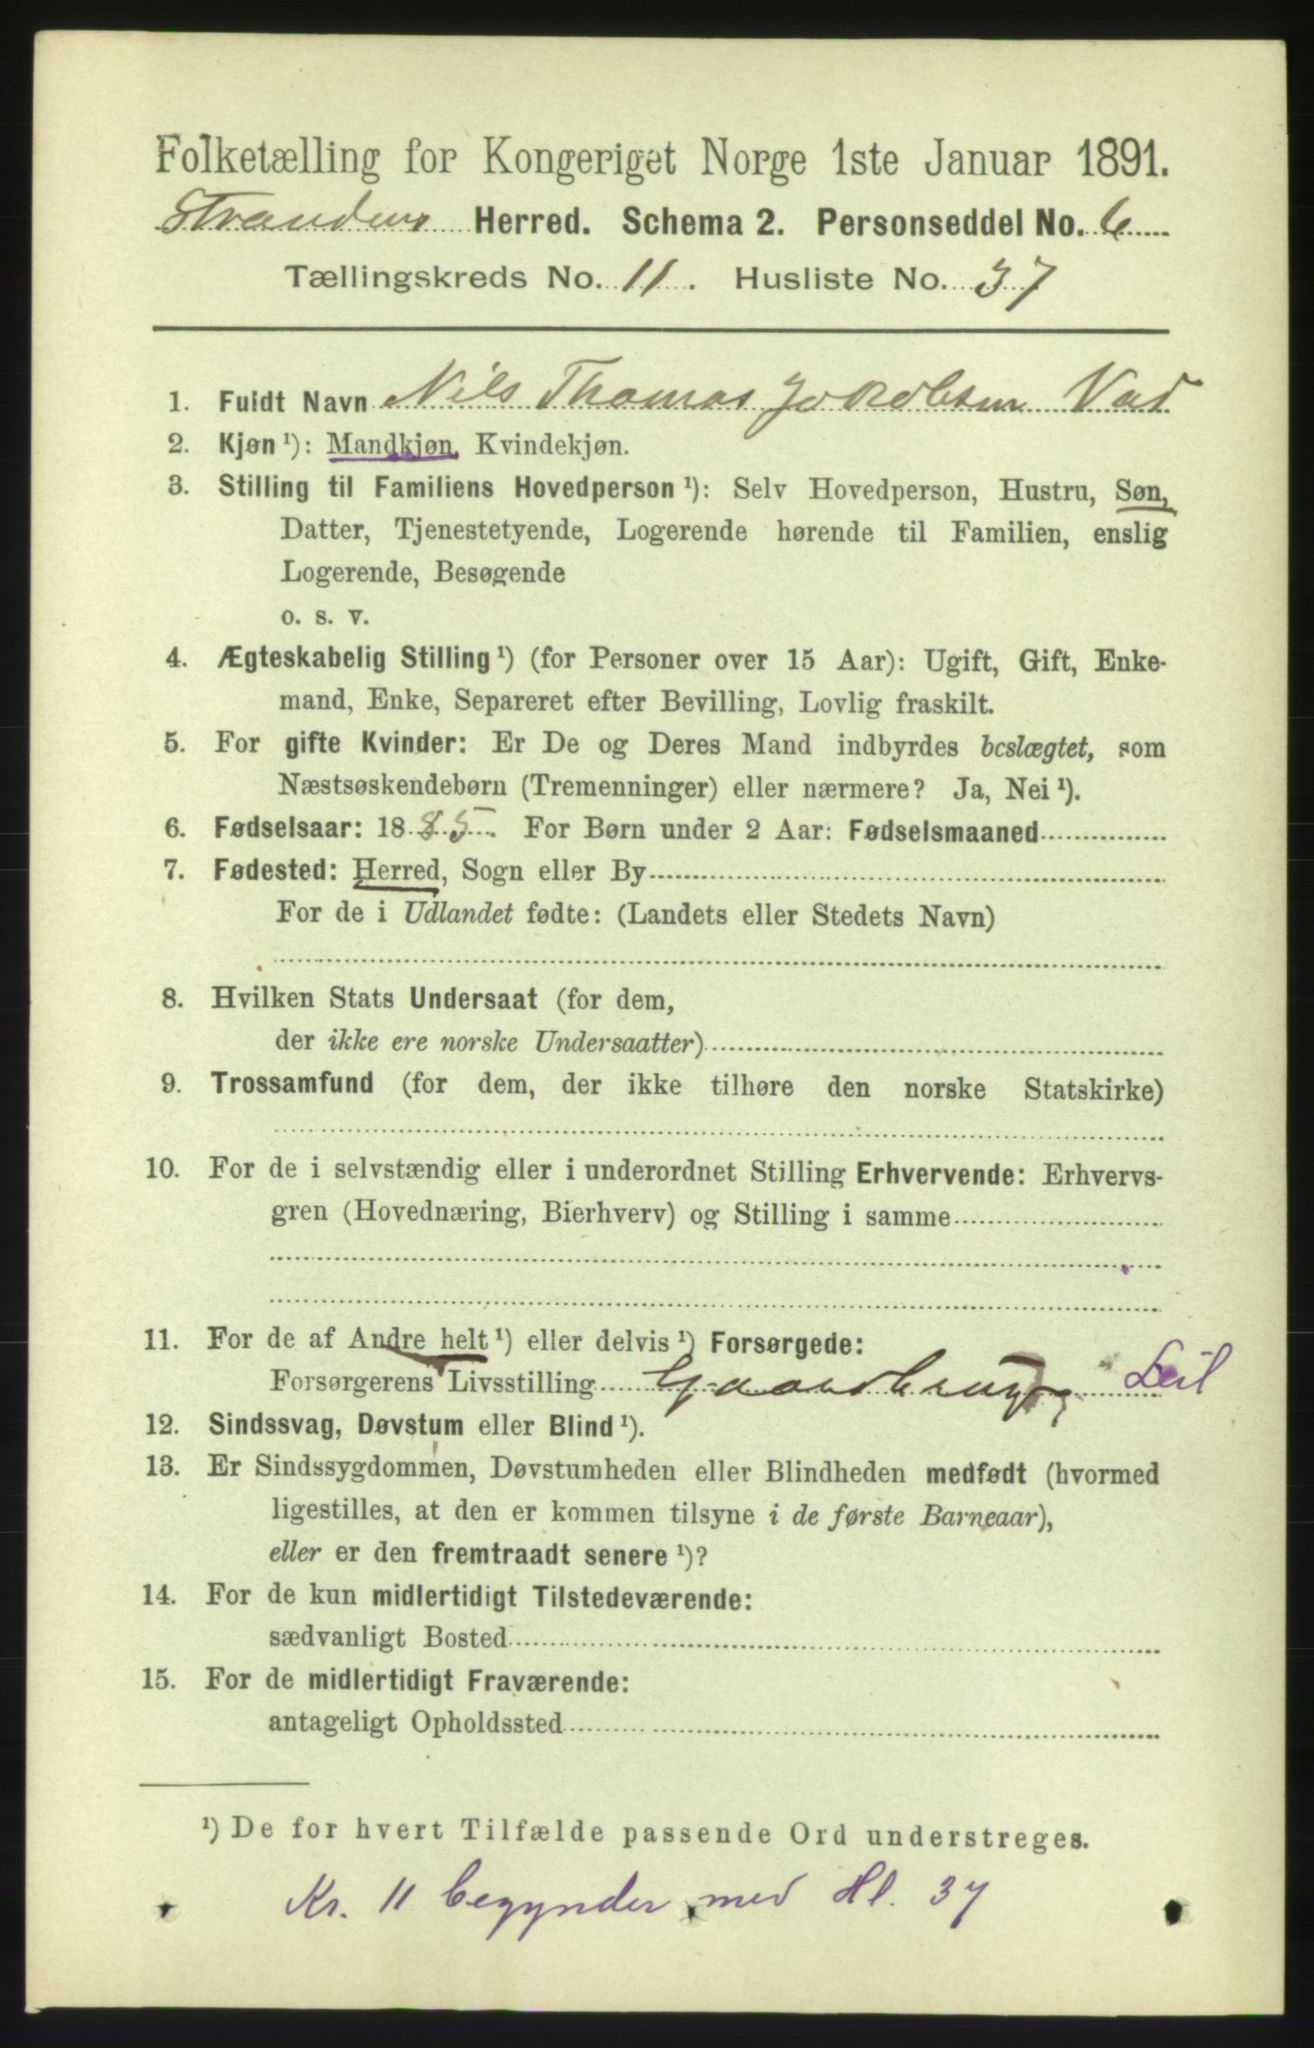 Folketælling for Kongeriget Norge 1ste Januar 1891.
Stranden Herred. Schema 2. Personseddel No. 6
Tællingskreds No. 11. Husliste No. 37
1. Fuldt Navn Nils Thomas Jakobsen
2. Kjøn ¹): Mandkjøn, Kvindekjøn.
3. Stilling til Familiens Hovedperson ¹): Selv Hovedperson, Hustru, Søn,
Datter, Tjenestetyende, Logerende hørende til Familien, enslig
Logerende, Besøgende
o. s. v.
4. Ægteskabelig Stilling ¹) (for Personer over 15 Aar): Ugift, Gift, Enke-
mand, Enke, Separeret efter Bevilling, Lovlig fraskilt.
5. For gifte Kvinder: Er De og Deres Mand indbyrdes beslægtet, som
Næstsøskendebørn (Tremenninger) eller nærmere? Ja, Nei ¹).
6. Fødselsaar: 1885. For Børn under 2 Aar: Fødselsmaaned
7. Fødested: Herred, Sogn eller By
For de i Udlandet fødte: (Landets eller Stedets Navn)
8. Hvilken Stats Undersaat (for dem,
der ikke ere norske Undersaatter)
9. Trossamfund (for dem, der ikke tilhøre den norske Statskirke)
10. For de i selvstændig eller i underordnet Stilling Erhvervende: Erhvervs-
gren (Hovednæring, Bierhverv) og Stilling i samme
11. For de af Andre helt ¹) eller delvis ¹) Forsørgede:
Forsørgerens Livsstilling Gaardbruger Leil
12. Sindssvag, Døvstum eller Blind ¹).
13. Er Sindssygdommen, Døvstumheden eller Blindheden medfødt (hvormed
ligestilles, at den er kommen tilsyne i de første Barneaar),
eller er den fremtraadt senere ¹)?
14. For de kun midlertidigt Tilstedeværende:
sædvanligt Bosted
15. For de midlertidigt Fraværende:
antageligt Opholdssted
¹) De for hvert Tilfælde passende Ord understreges.
Kr. 11 begynder med Hl. 37